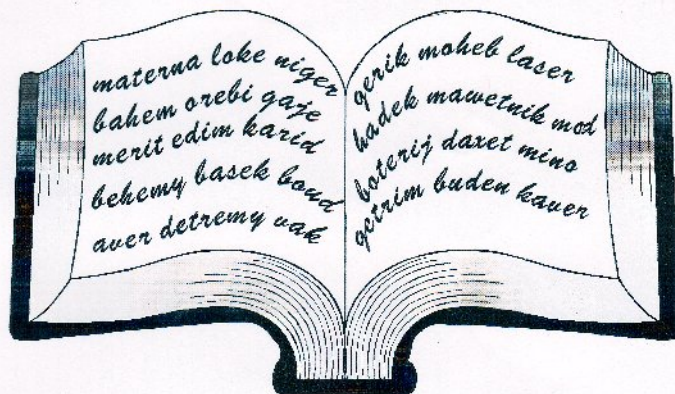 materna loke niger
bahem orebi gaje
merit edim karid
behemy basek boud
aver detremy vak
gerik moheb laser
hadek mawetnik mod
boterij daxet mino
getrim buden kaver